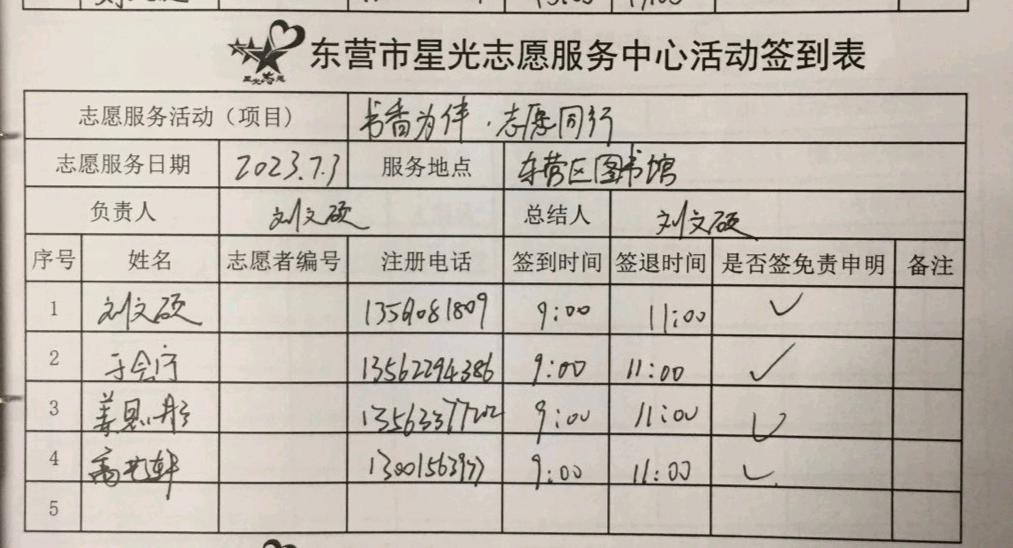 东营市星光志愿服务中心活动签到表
志愿服务活动（项目） 书香为伴·志愿同行
志愿服务日期 2023.7.3 服务地点 东营区图书馆
负责人 刘文硕 总结人 刘文硕
序号 姓名 志愿者编号 注册电话 签到时间 签退时间 是否签免责申明 备注
1 刘文硕 9:00 11:00 ✓
2 于会宁 13562294386 9:00 11:00 ✓
3 姜思彤 9:00 11:00 ✓
4 9:00 11:00 ✓
5